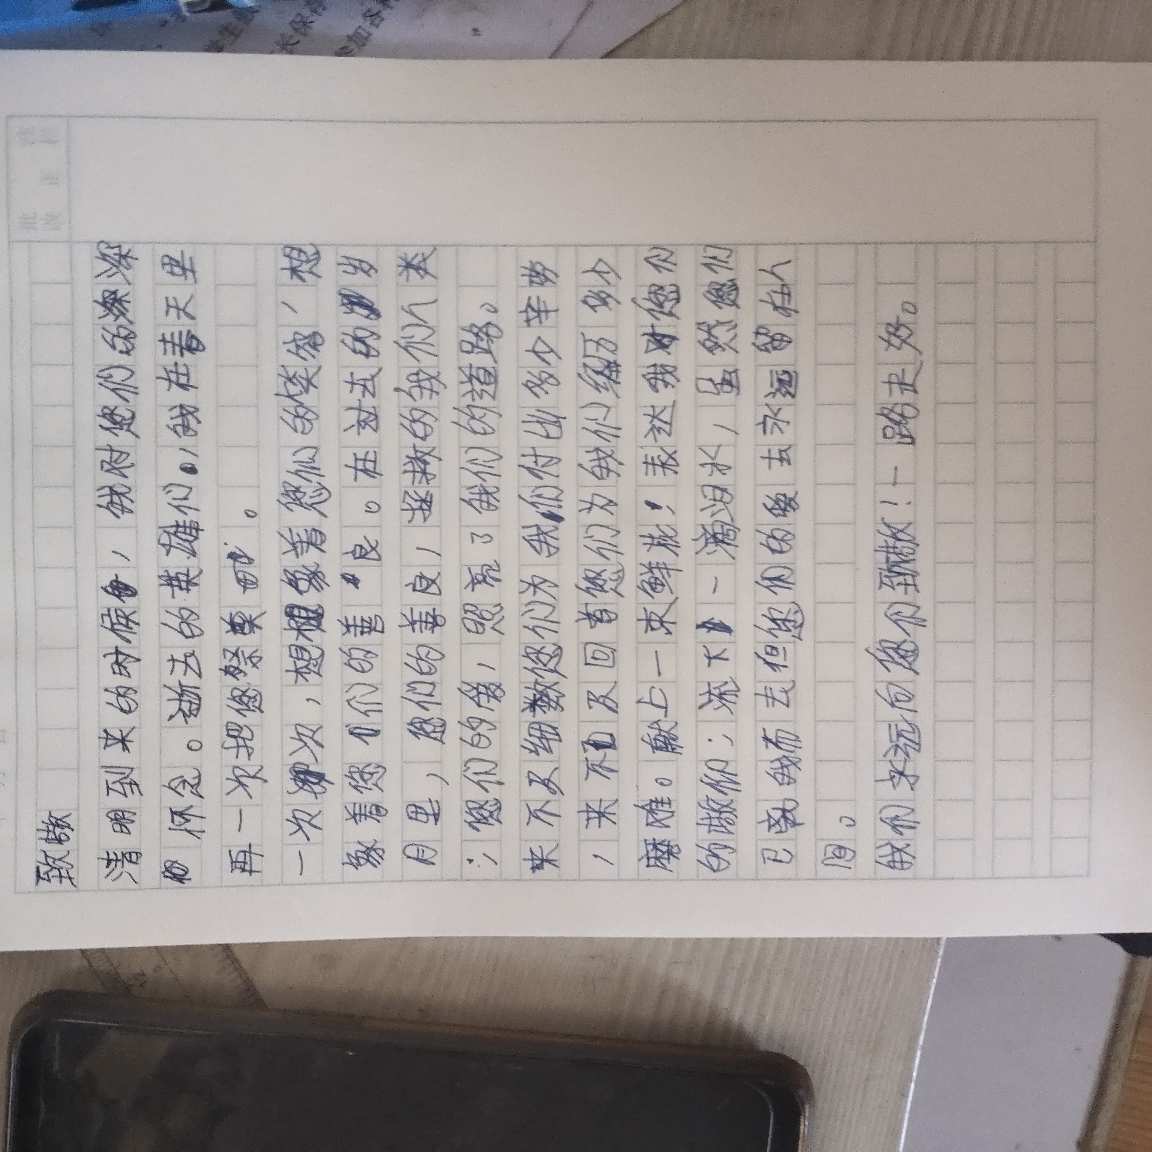 致敬
清明到来的时候，我对您们的深深
怀念。逝去的英雄们，我在春天里
再一次把您祭奠。
一次次，想象着您们的笑容，想
象着您们的善良。在过去的岁
月里，您们的善良，拯救的我们人类
；您们的爱，照亮了我们的道路。
来不及细数您们为我们付出多少辛劳
，来不及回首您们为我们经历多少
磨难。献上一束鲜花，表达我对您们
的敬仰；流下一滴泪水，虽然您们
已离我而去但您们的爱去永远留在人
间。
我们永远向您们致敬！一路走好。
批改